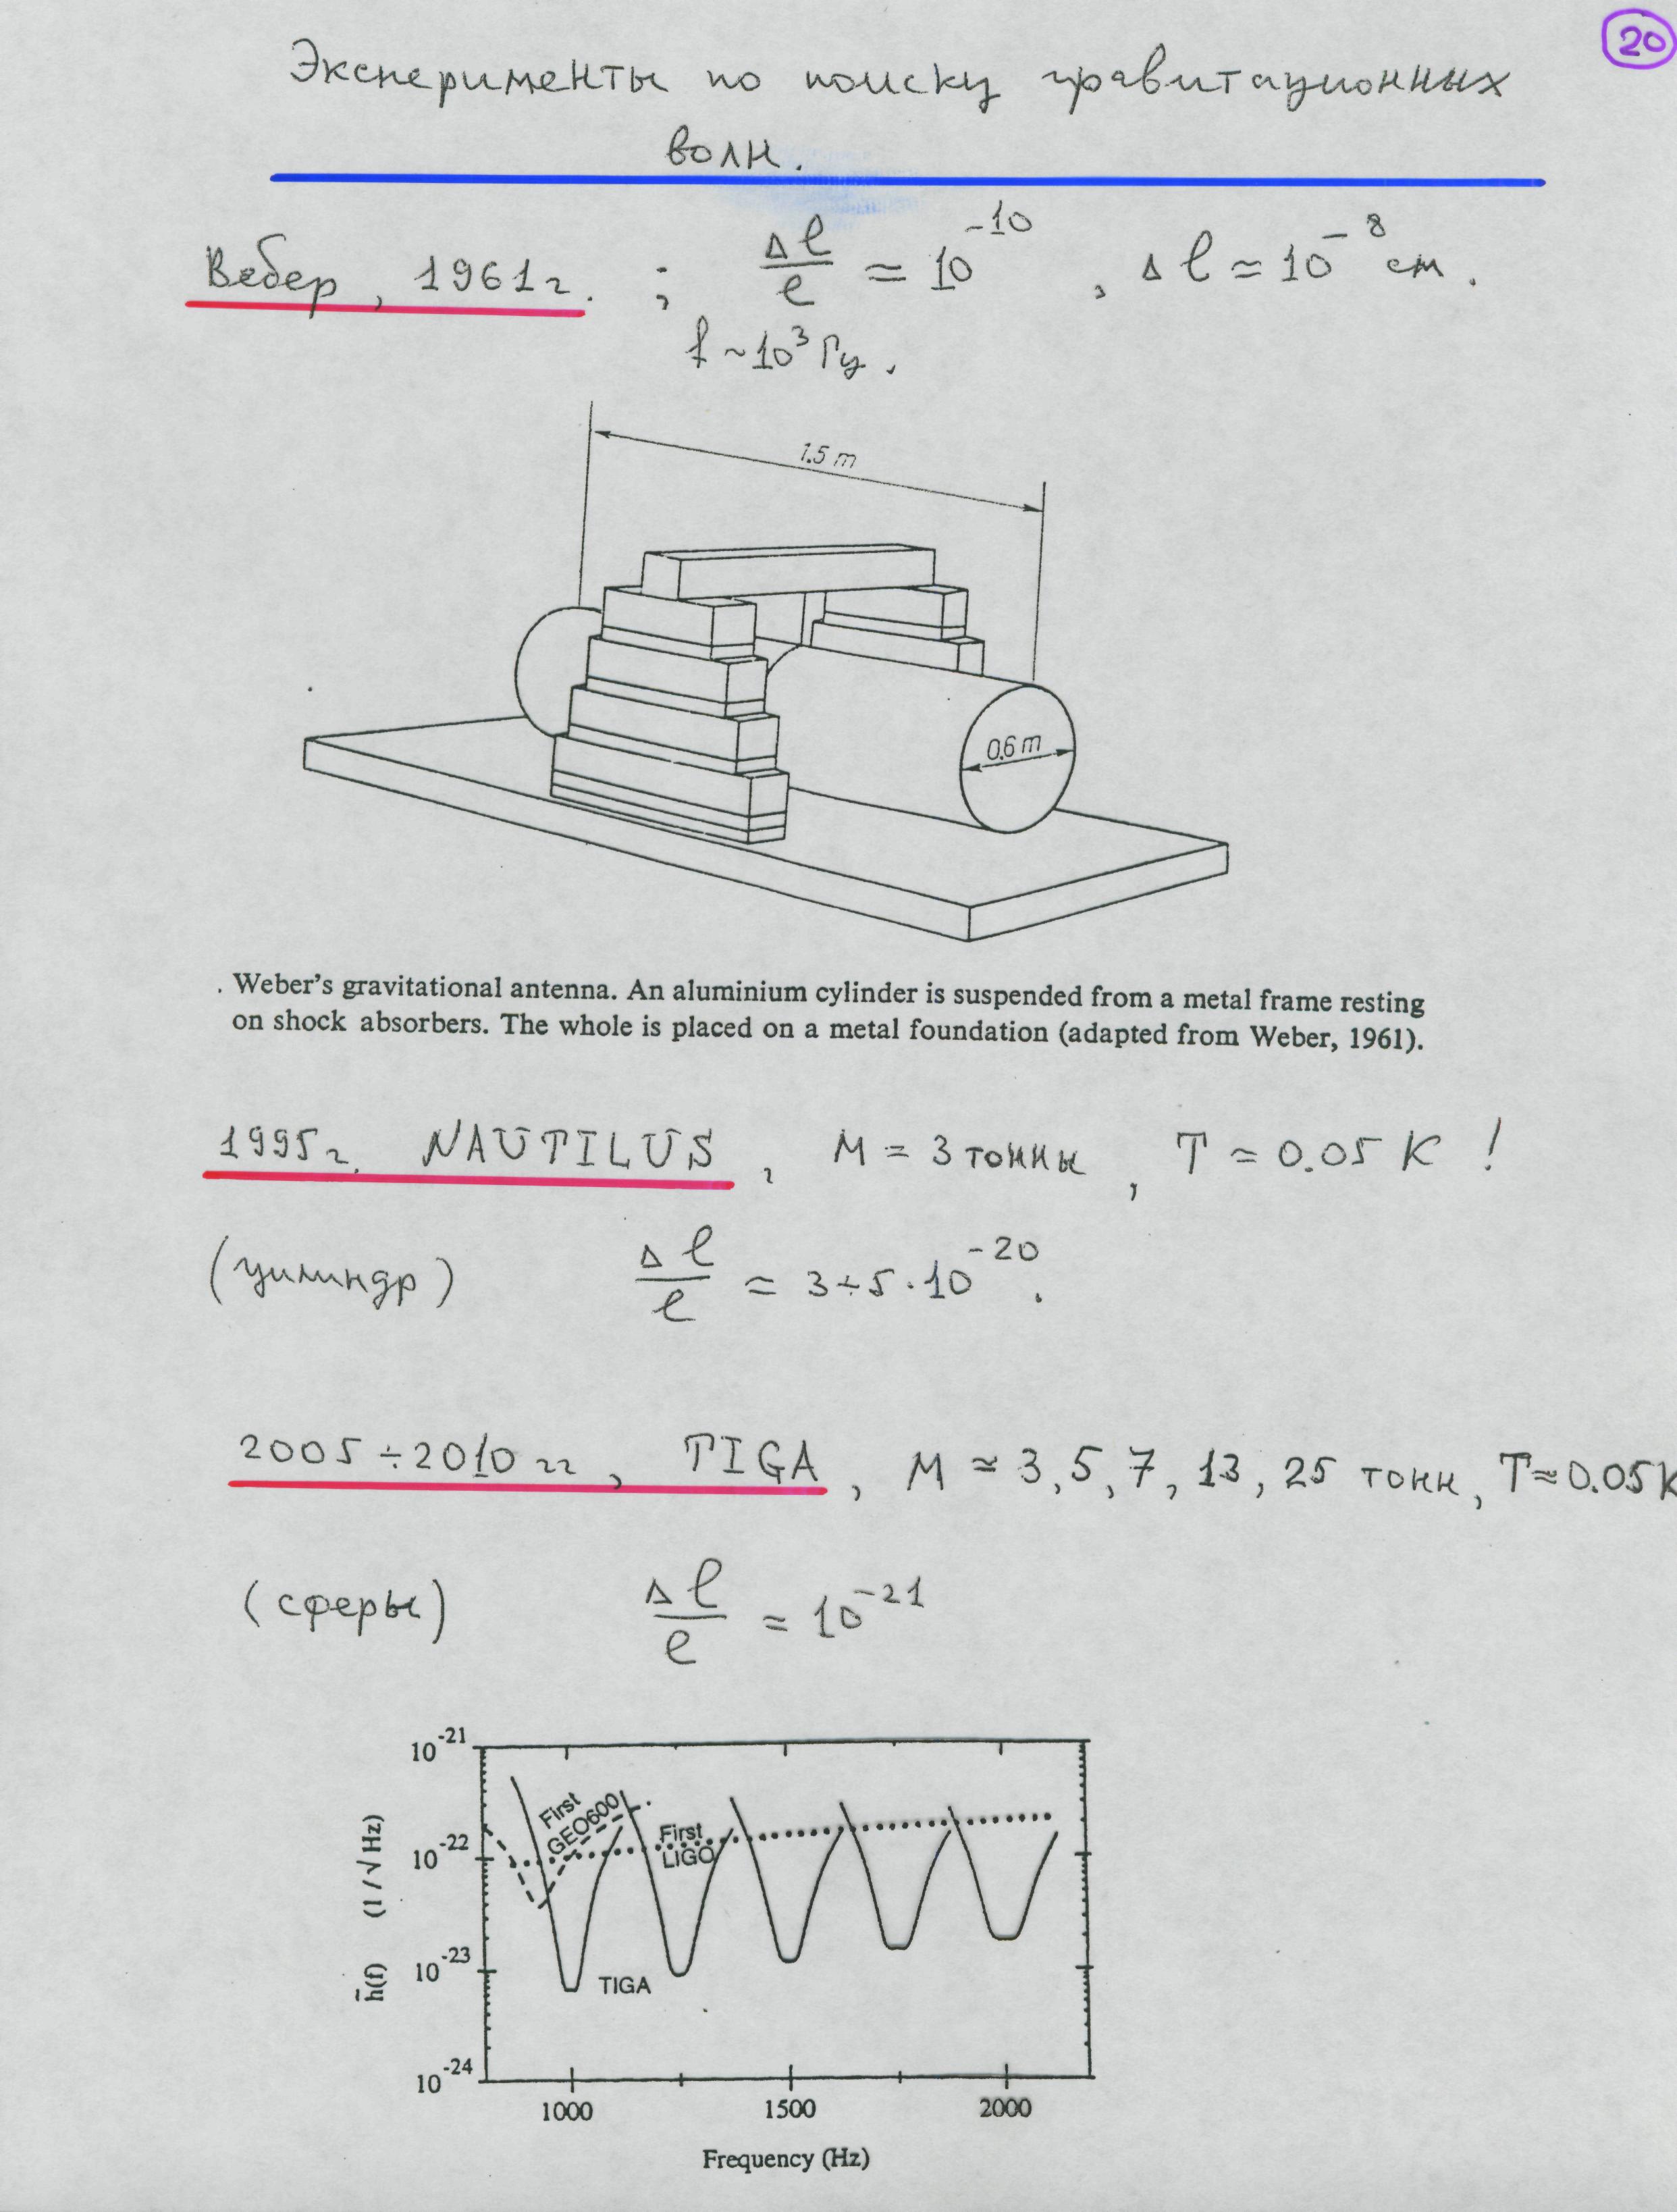 20
Эксперименты по поиску гравитационных
волн.
Вебер, 1961г. ; Δl/l ≃ 10^-10, Δl ≃ 10^-8 см.
f ~ 10^3 Гц.
1.5 m
0.6 m
. Weber's gravitational antenna. An aluminium cylinder is suspended from a metal frame resting
on shock absorbers. The whole is placed on a metal foundation (adapted from Weber, 1961).
1995г. NAUTILUS, M = 3 тонны, T ≃ 0.05 K !
(цилиндр) Δl/l ≃ 3÷5·10^-20.
2005÷2010 гг, TIGA, M ≃ 3, 5, 7, 13, 25 тонн, T≈0.05K
(сферы) Δl/l ≃ 10^-21
10^-21
10^-22
10^-23
10^-24
h̃(f) (1/√Hz)
First
GEO600
First
LIGO
TIGA
1000 1500 2000
Frequency (Hz)